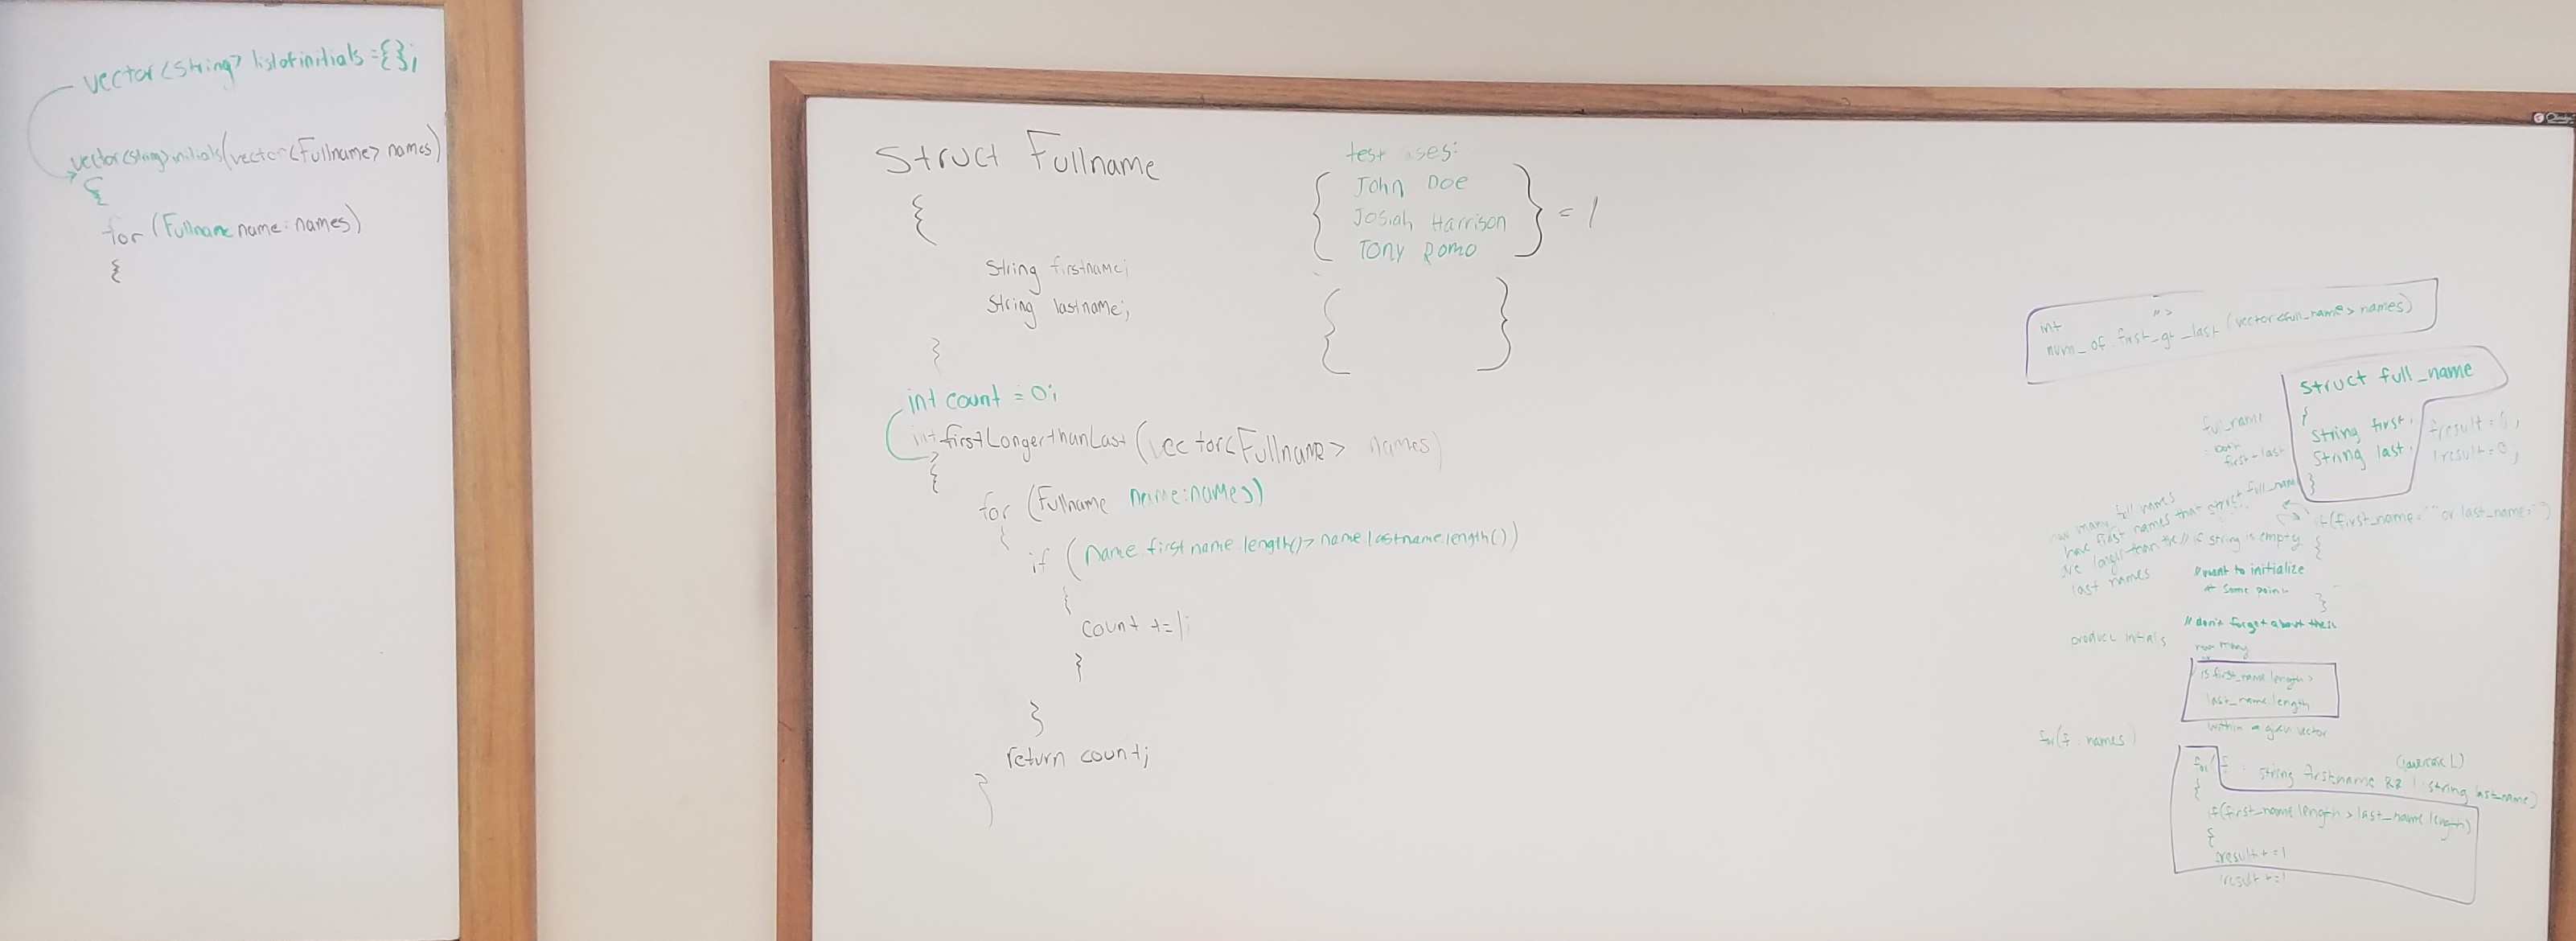 vector<string> listofinitials = {};
vector<string> initials(vector<Fullname> names)
{
for (Fullname name: names)
{
Struct Fullname
{
String firstname;
String lastname;
}
int count = 0;
int firstLongerthanLast (vector<Fullname> names)
{
for (Fullname name:names)
{
if (name.firstname.length()>name.lastname.length())
{
count +=1;
}
}
return count;
}
test ases:
{ John Doe
Josiah Harrison
Tony Romo } = 1
{ }
int
num_of_first_gt_last (vector<full_name> names)
Struct full_name
{
String first;
String last;
}
fresult = 0;
lresult = 0;
full_name
both
first-last
how many full names
have first names that
are longer than the
last names
struct full_name
// if string is empty
if(first_name="" or last_name="")
{
//want to initialize
at some point
}
// don't forget about these
produce initials
how many
is first_name length >
last_name length
within a given vector
for(f: names)
(lowercase L)
for(f: string firstname && l:string last_name)
{
if(first_name length > last_name length)
{
fresult += 1
lresult += 1